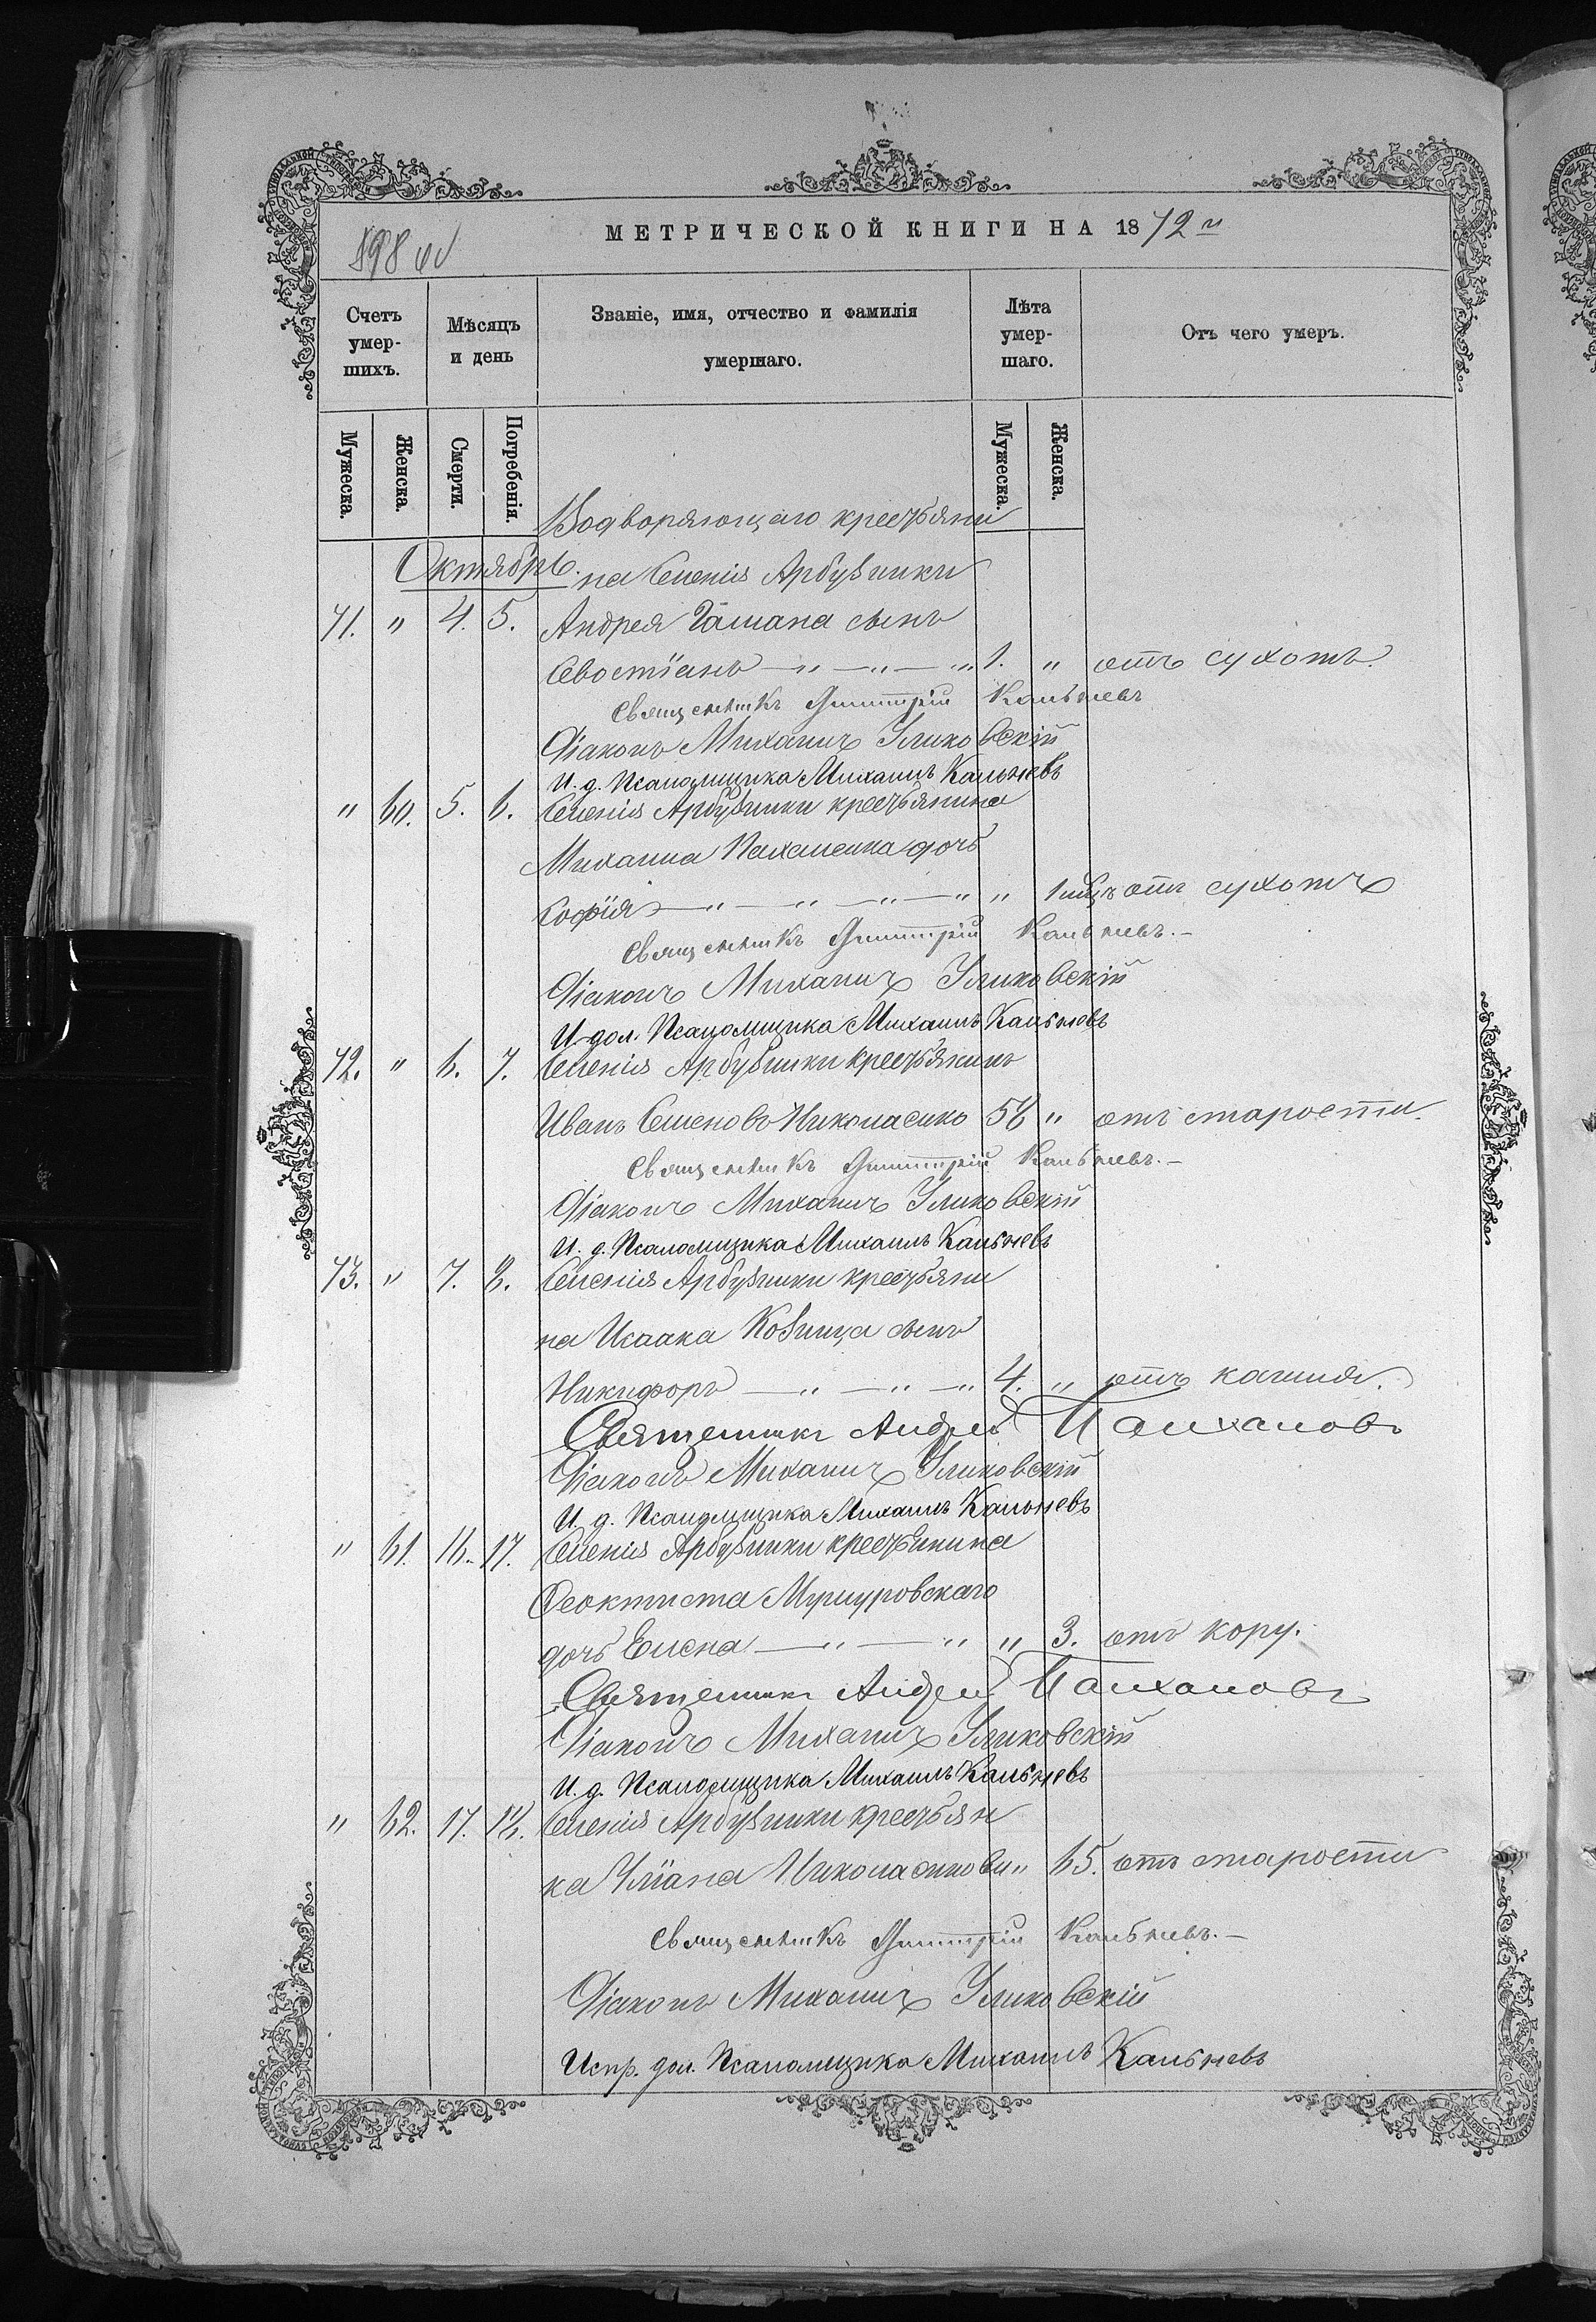 МЕТРИЧЕСКОЙ КНИГИ НА 1872 г
898
Счетъ умер-шихъ.
Мѣсяцъ и день
Званіе, имя, отчество и фамилія умершаго.
Лѣта умер-шаго.
Отъ чего умеръ.
Мужеска. Женска. Смерти. Погребенія. Мужеска. Женска.
Водворяющаго крестьяни
Октябрь. на Селенія Арбузинки
71. " 4. 5. Андрея сынъ
Севостіанъ — " — " — " 1. " отъ сухотъ.
Священникъ Димитрій Кальневъ
Діаконъ Михаилъ Уликовскій
И. д. Псаломщика Михаилъ Кальневъ
" 60. 5. 6. Селенія Арбузинки крестьянина
Михаила дочь
Софія — " — " — " — " " 1 мѣц. отъ сухотъ
Священникъ Димитрій Кальневъ. —
Діаконъ Михаилъ Уликовскій
И. дол. Псаломщика Михаилъ Кальневъ
72. " 6. 7. Селенія Арбузинки крестьянинъ
Иванъ Семеновъ Николаенко 56 " отъ старости.
Священникъ Димитрій Кальневъ. —
Діаконъ Михаилъ Уликовскій
И. д. Псаломщика Михаилъ Кальневъ
73. " 7. 8. Селенія Арбузинки крестьяни
на Исаака сынъ
Никифоръ — " — " — " 4. " отъ кашля.
Священникъ Андрей
Діаконъ Михаилъ Уликовскій
И. д. Псаломщика Михаилъ Кальневъ
" 61. 16. 17. Селенія Арбузинки крестьянина
Феоктиста
дочь Елена — " — " " 3. отъ кору.
Священникъ Андрей
Діаконъ Михаилъ Уликовскій
И. д. Псаломщика Михаилъ Кальневъ
" 62. 17. 18. Селенія Арбузинки крестьян
ка Уліана " 65. отъ старости
Священникъ Димитрій Кальневъ. —
Діаконъ Михаилъ Уликовскій
Испр. дол. Псаломщика Михаилъ Кальневъ